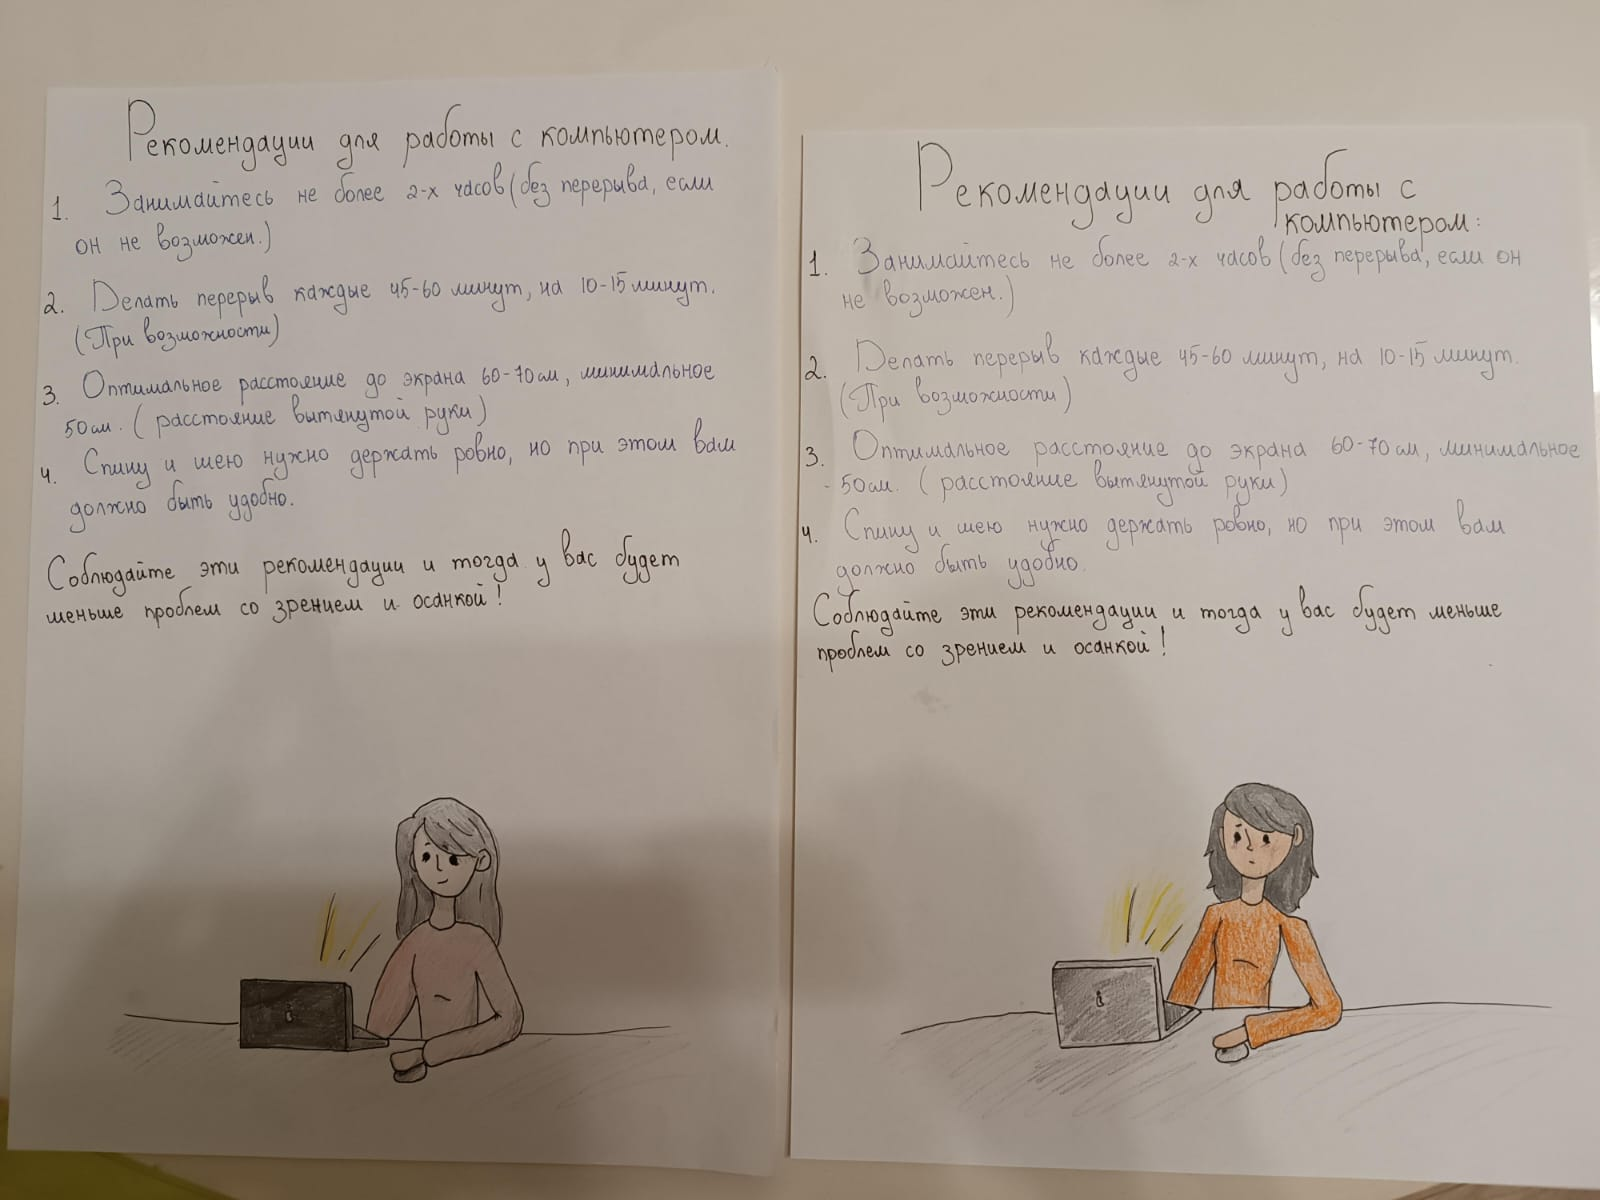 Рекомендации для работы с компьютером.
1. Занимайтесь не более 2-х часов (без перерыва, если
он не возможен.)
2. Делать перерыв каждые 45-60 минут, на 10-15 минут.
(При возможности)
3. Оптимальное расстояние до экрана 60-70 см, минимальное
50 см. (расстояние вытянутой руки)
4. Спину и шею нужно держать ровно, но при этом вам
должно быть удобно.
Соблюдайте эти рекомендации и тогда у вас будет
меньше проблем со зрением и осанкой!
Рекомендации для работы с
компьютером:
1. Занимайтесь не более 2-х часов (без перерыва, если он
не возможен.)
2. Делать перерыв каждые 45-60 минут, на 10-15 минут.
(При возможности)
3. Оптимальное расстояние до экрана 60-70 см, минимальное
- 50 см. (расстояние вытянутой руки)
4. Спину и шею нужно держать ровно, но при этом вам
должно быть удобно.
Соблюдайте эти рекомендации и тогда у вас будет меньше
проблем со зрением и осанкой!